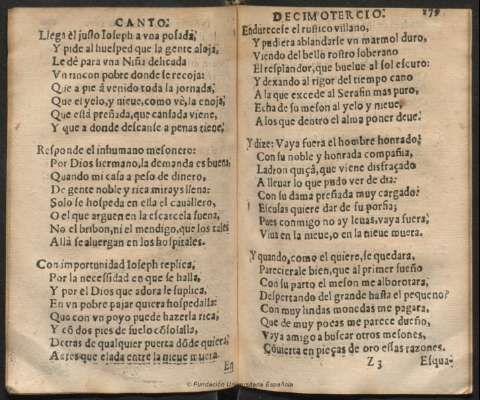 CANTO.
Llega èl justo Ioseph a vna posada,
Y pide al huesped que la gente aloja,
Le dè para vna Niña delicada
Vn rincon pobre donde se recoja:
Que a pie à venido toda la jornada,
Que el yelo, y nieue, como vè, la enoja,
Que està preñada, que cansada viene,
Y que a donde descanse a penas tiene.
Responde el inhumano mesonero:
Por Dios hermano, la demanda es buena,
Quando mi casa a peso de dinero,
De gente noble y rica mirays llena:
Solo se hospeda en ella el cauallero,
O el que arguen en la escarcela suena,
No el bribon, ni el mendigo, que los tales
Allà se aluergan en los hospitales.
Con importunidad Ioseph replica,
Por la necessidad en que se halla,
Y por el Dios que adora le suplica,
En vn pobre pajar quiera hospedalla:
Que con vn poyo puede hazerla rica,
Y cõ dos pies de suelo cõsolalla,
Detras de qualquier puerta dõde quiera,
Antes que elada entre la nieue muera.
En
DECIMOTERCIO. 179
Endurecese el rustico villano,
Y pudiera ablandarse vn marmol duro,
Viendo del bello rostro soberano
El resplandor, que buelue al sol escuro:
Y dexando al rigor del tiempo cano
A la que excede al Serafin mas puro,
Echa de su meson al yelo y nieue,
A los que dentro el alma poner deue.
Y dize: Vaya fuera el hombre honrado,
Con su noble y honrada compañia,
Ladron quiçà, que viene disfraçado
A lleuar lo que pudo ver de dia:
Con su dama preñada muy cargado?
Escusas quiere dar de su porfia;
Pues conmigo no ay leuas, vaya fuera,
Viua en la nieue, o en la nieue muera.
Y quando, como el quiere, se quedara,
Parecierale bien, que al primer sueño
Con su parto el meson me alborotara,
Despertando del grande hasta el pequeño?
Con muy lindas monedas me pagara,
Que de muy pocas me parece dueño,
Vaya amigo a buscar otros mesones,
Cõuierta en pieças de oro essas razones.
Z 3 Esqua-
© Fundación Universitaria Española